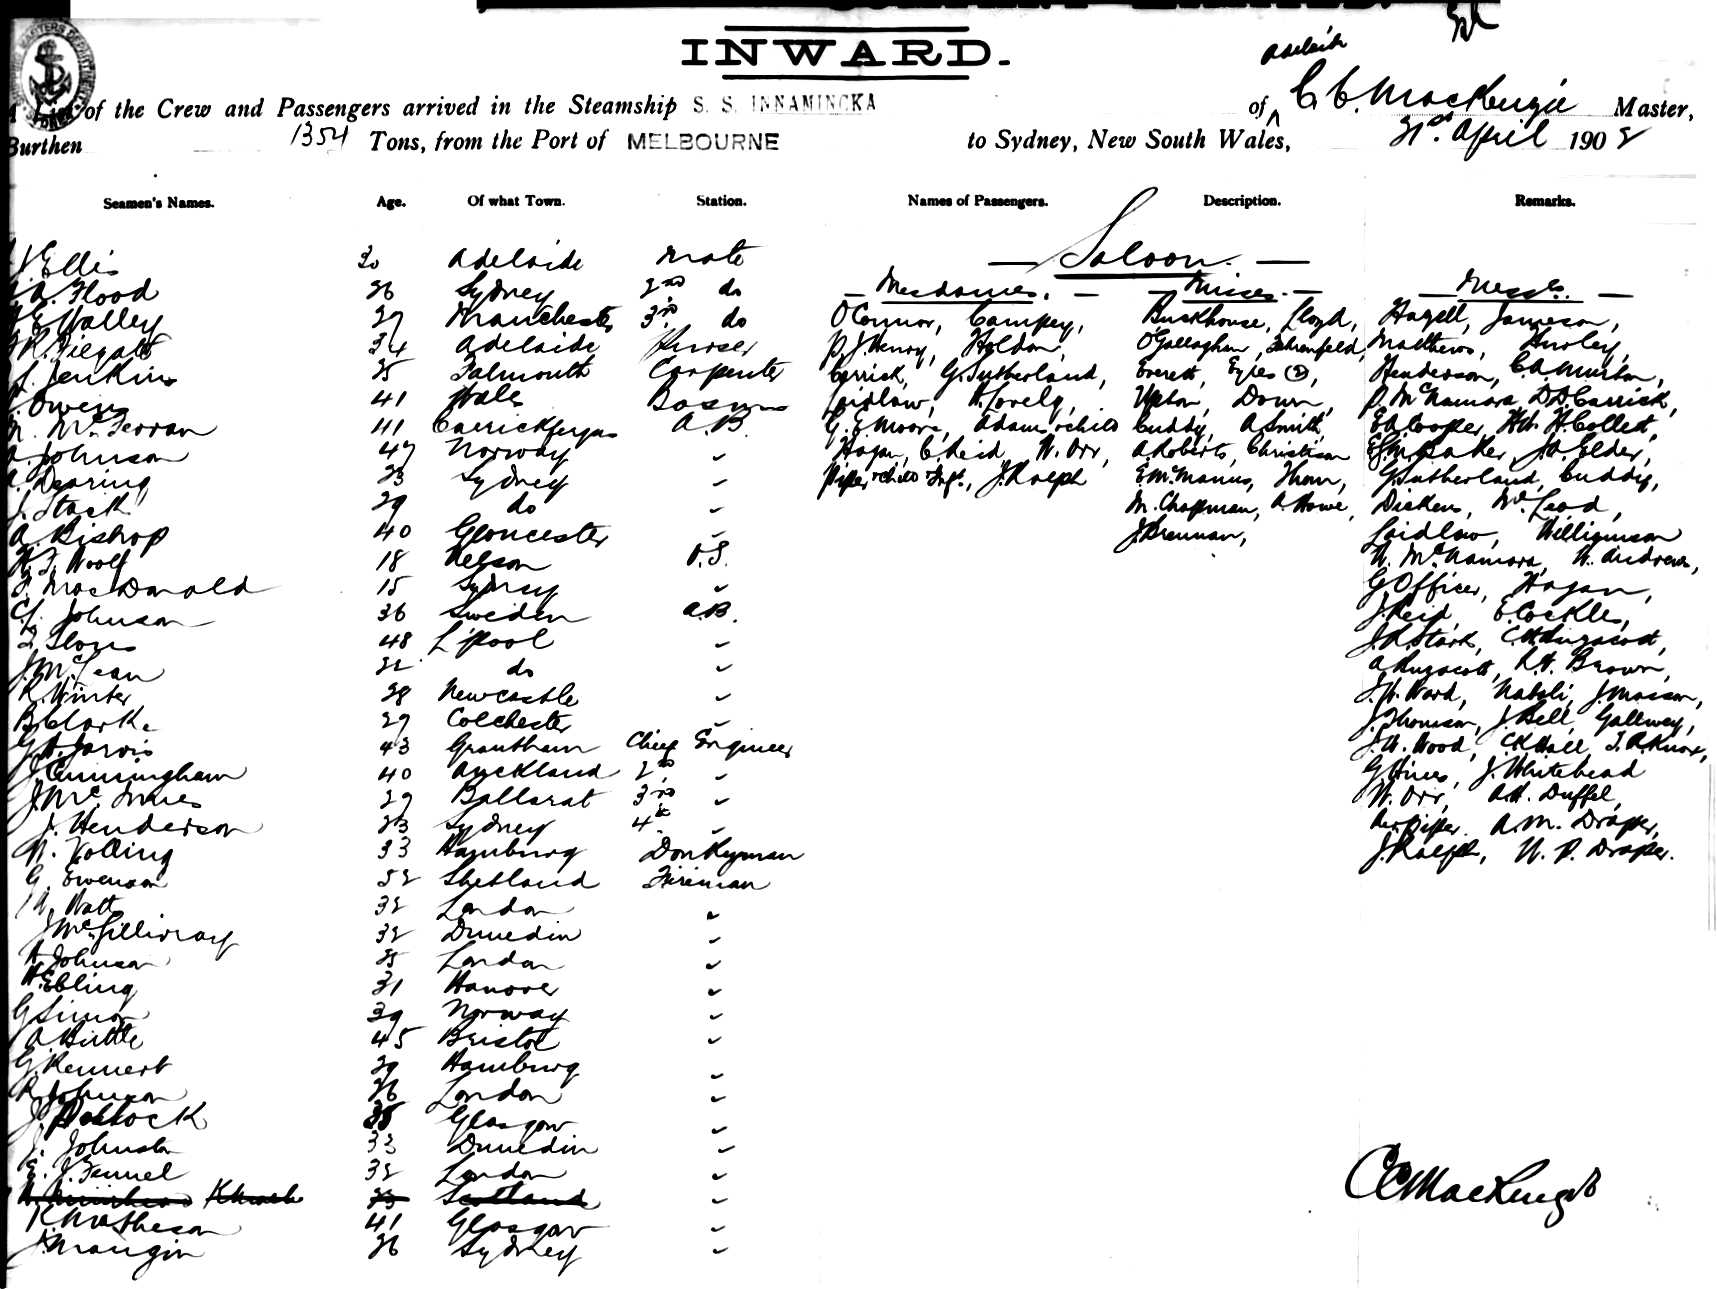 INWARD.
Adelaide
of the Crew and Passengers arrived in the Steamship S. S. INNAMINCKA of C. C. MacKenzie Master,
Burthen 1354 Tons, from the Port of MELBOURNE to Sydney, New South Wales, 21st April 1902
Seamen's Names. Age. Of what Town. Station. Names of Passengers. Description. Remarks.
— Saloon. —
— Mesdames. — — Misses. — — Messrs. —
Ellis 30 Adelaide Mate
Flood 26 Sydney 2nd do
Walley 29 Manchester 3rd. do
34 Adelaide Purser
Jenkins 25 Falmouth Carpenter
Owens 41 Wales Bosun
41 Carrickfergus A.B.
Johnson 47 Norway "
Dearing 23 Sydney "
J. Stack 29 do "
A. Bishop 40 Gloucester "
Woolf 18 Nelson O.S.
MacDonald 15 Sydney "
Johnson 36 Sweden A.B.
48 L'pool "
J. McLean 22 do "
R. Winter 28 Newcastle "
B. Clarke 29 Colchester "
Jarvis 43 Grantham Chief Engineer
J. Cunningham 40 Auckland 2nd "
J. McInnes 29 Ballarat 3rd "
J. Henderson 23 Sydney 4th "
33 Hamburg Donkeyman
G. Ewenson 52 Shetland Fireman
Watt 32 London "
J McGillivray 32 Dunedin "
Johnson 25 London "
H. Ebling 31 Hanover "
G Simon 39 Norway "
A Birtle 45 Bristol "
G. Rennert 29 Hamburg "
R. Johnson 26 London "
J. Pollock 38 Glasgow "
J. Johnston 33 Dunedin "
E. J. Fennel 32 London "
23 Scotland "
K Matheson 41 Glasgow "
J. Mangin 26 Sydney "
O'Connor, Campey,
P. J. Henry, Holdon,
Carrick, G. Sutherland,
Laidlaw, Lovely,
G. E. Moore, Adams & child
Hogan, C. Reid, W. Orr,
Piper child & Inft., J. Ralph
Buckhouse, Lloyd,
O'Gallaghan, Fehrenfeld,
Everett, Eyles (2),
Upton, Dounn,
Cuddy, A Smith,
A. Roberts, Christison
E. McManus, Thom,
M. Chapman, A Howe,
J. Brennan,
Hazell, Jameson,
Matthews, Hurley,
Henderson, C. A. Murton,
P. McNamara, D. D. Carrick,
E A. Cooper, H. Collett,
Baker, J. A. Elder,
G. Sutherland, Cuddy,
Dickens, McLeod,
Laidlaw, Williamson
W. McNamara, W. Andrews,
G Officer, Hogan,
J. Reid, E. Cockles,
J. R. Stark,
R. H. Brown,
J. W. Ward, Natoli, J. Masson,
J. Thomson, J Bell, Gallwey,
J. W. Wood, C K Hall, T. A. Knox,
G Hines, J. Whitehead
W. Orr, A. H. Duffel,
Piper. A. M. Draper,
J. Ralph, W. P. Draper.
C C MacKenzie